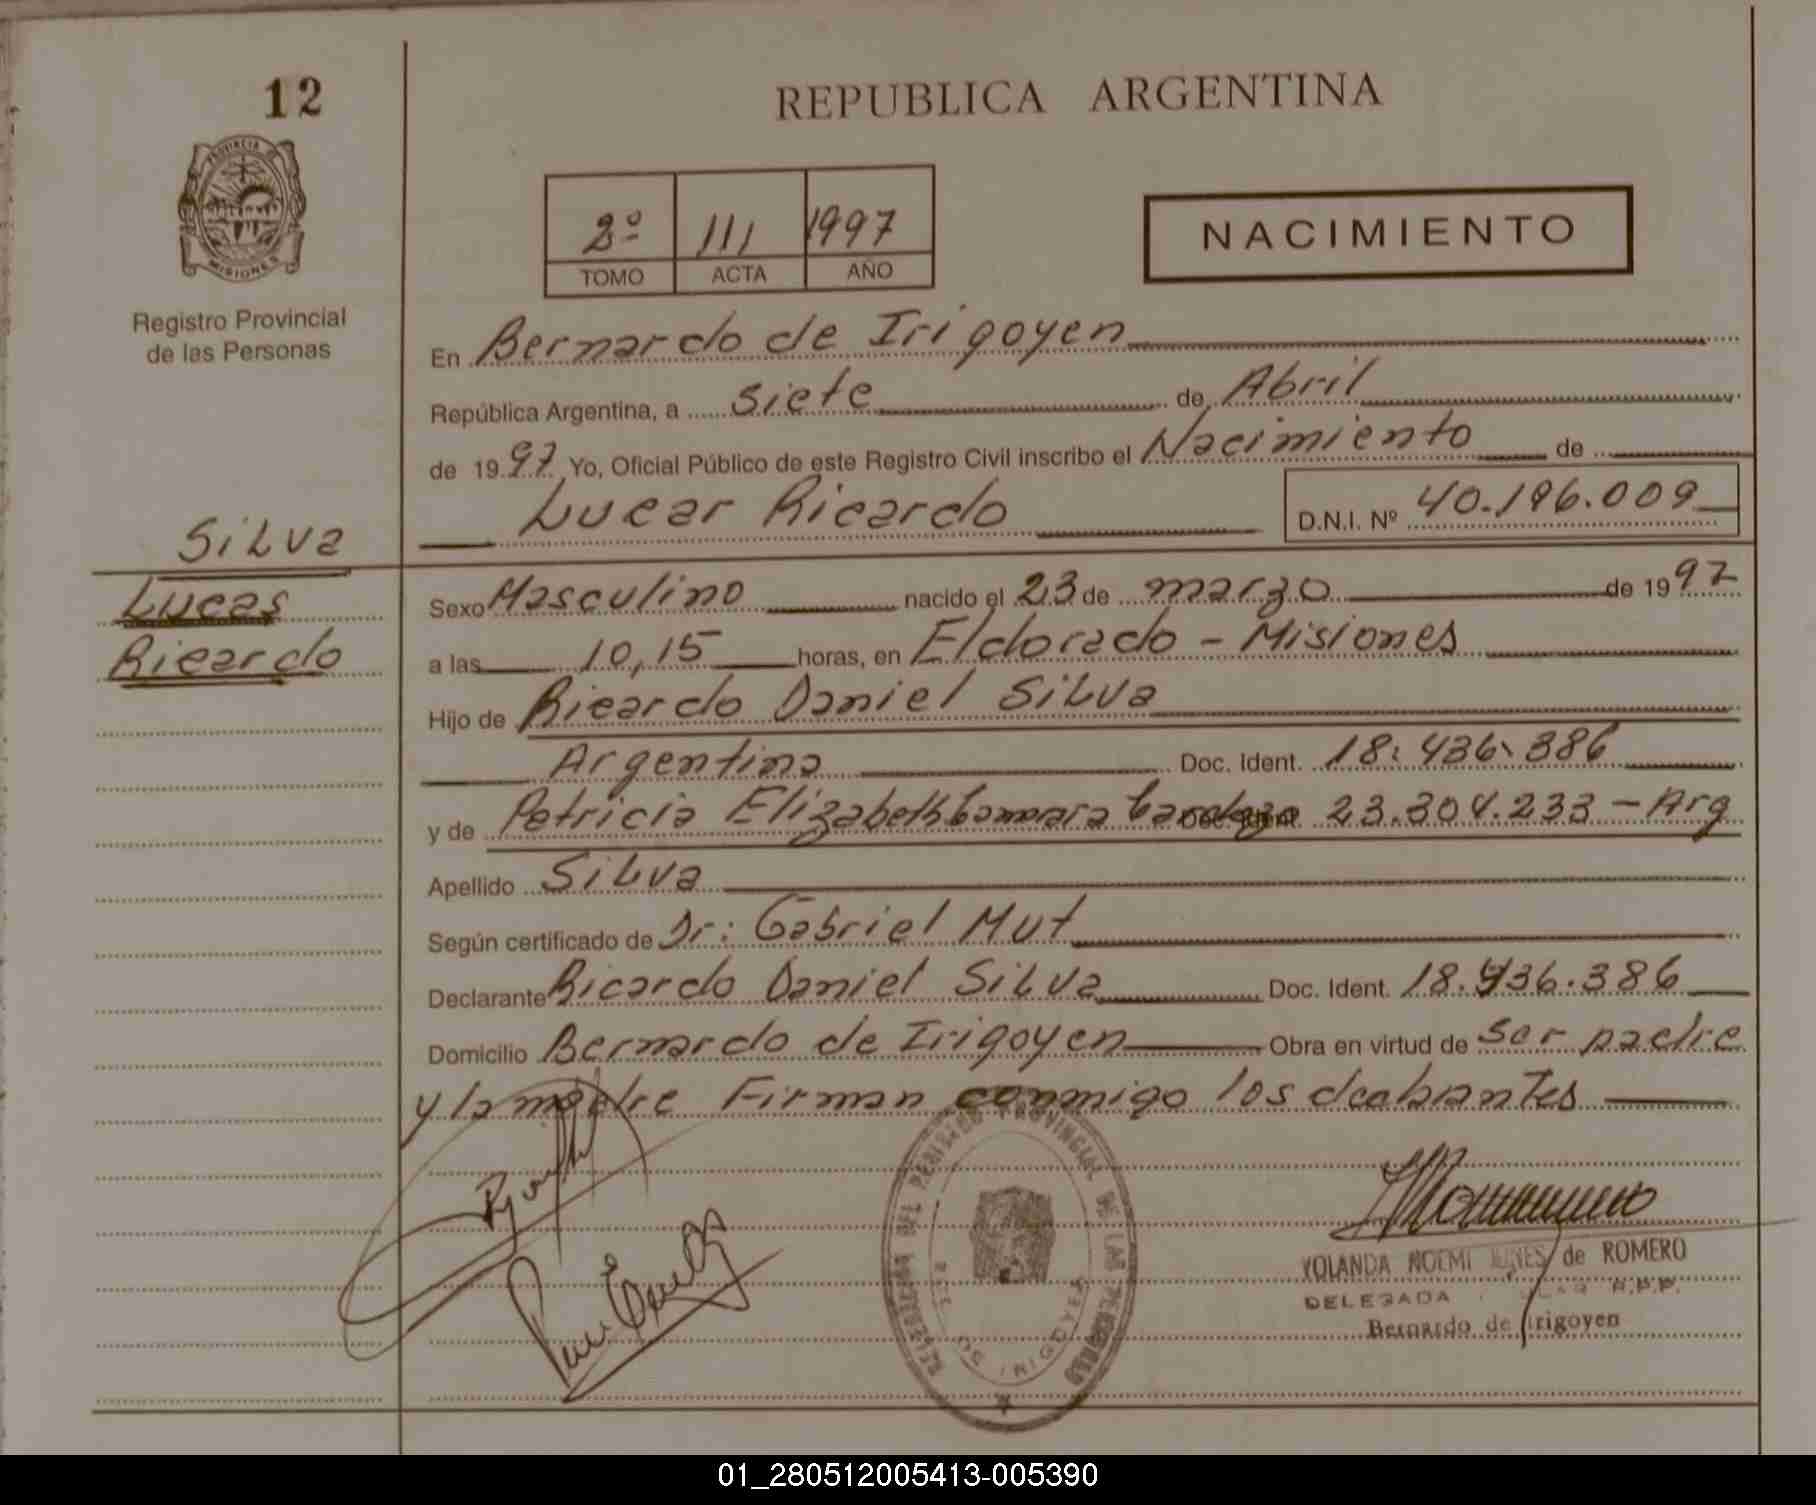 12
REPUBLICA ARGENTINA
PROVINCIA DE
MISIONES
Registro Provincial
de las Personas
2º 111 1997
TOMO ACTA AÑO
NACIMIENTO
En Bernardo de Irigoyen
República Argentina, a siete de Abril
de 1997 Yo, Oficial Público de este Registro Civil inscribo el Nacimiento de
Lucas Ricardo D.N.I. Nº 40.196.009
Silva
Lucas
Ricardo
Sexo Masculino nacido el 23 de marzo de 1997
a las 10,15 horas, en Eldorado - Misiones
Hijo de Ricardo Daniel Silva
Argentino Doc. Ident. 18.436.386
y de Patricia Elizabeth Camara Cardozo 23.304.233 - Arg
Apellido Silva
Según certificado de Dr: Gabriel Mut
Declarante Ricardo Daniel Silva Doc. Ident. 18.436.386
Domicilio Bernardo de Irigoyen Obra en virtud de ser padre
y la madre Firman conmigo los declarantes
PROVINCIAL DE LAS PERSONAS
DE IRIGOYEN
YOLANDA NOEMI de ROMERO
DELEGADA R.P.P.
Bernardo de Irigoyen
01_280512005413-005390